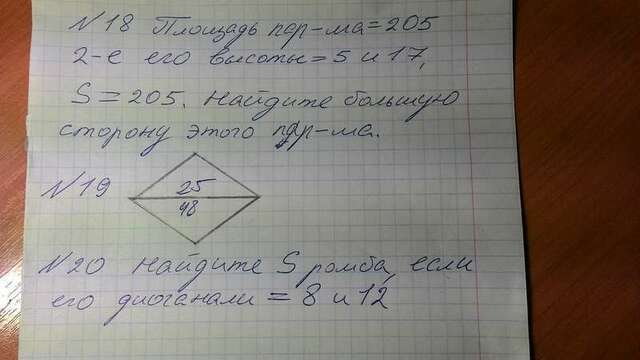 №18 Площадь пар-ма=205
2-е его высоты=5 и 17,
S=205. Найдите большую
сторону этого пар-ма.
№19
25
48
№20 Найдите S ромба, если
его диоганали = 8 и 12